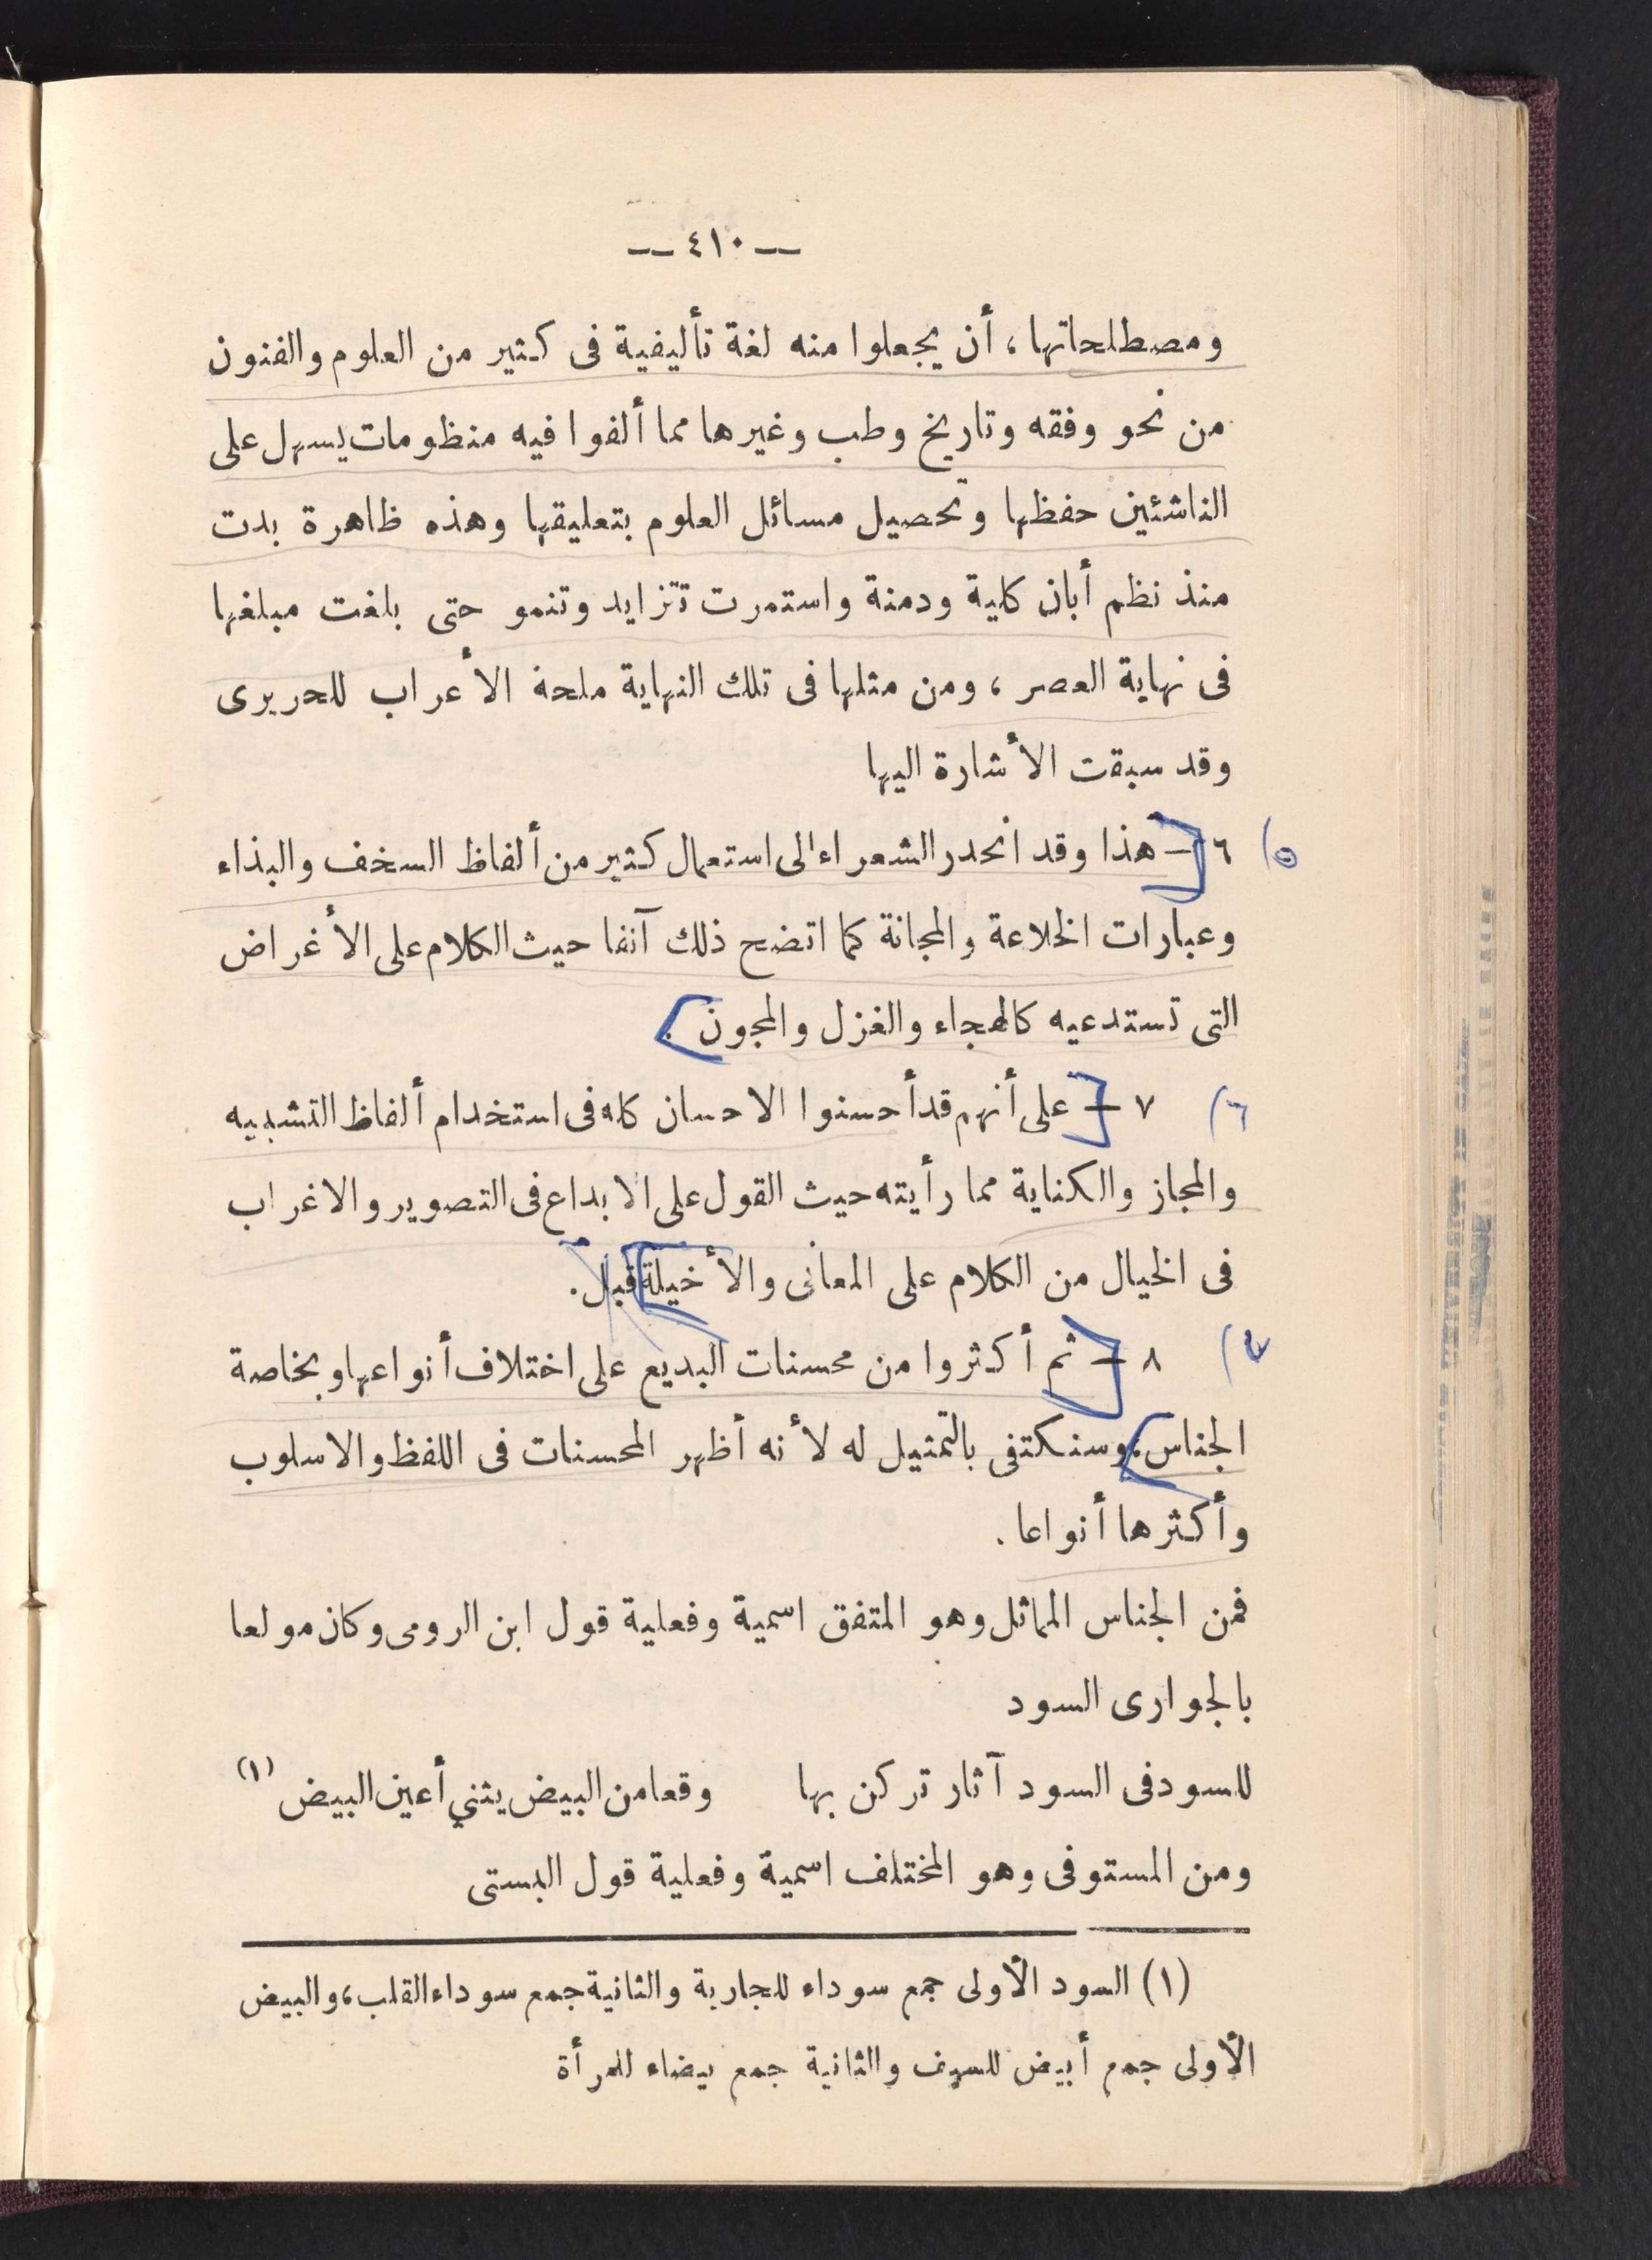 — ٤١٠ —
ومصطلحاتها ، أن يجعلوا منه لغة تأليفية فى كثير من العلوم والفنون
من نحو وفقه وتاريخ وطب وغيرها مما ألفوا فيه منظومات يسهل على
الناشئين حفظها وتحصيل مسائل العلوم بتعليقها وهذه ظاهرة بدت
منذ نظم أبان كليلة ودمنة واستمرت تتزايد وتنمو حتى بلغت مبلغها
فى نهاية العصر ، ومن مثلها فى تلك النهاية ملحة الأعراب للحريرى
وقد سبقت الأشارة اليها
٥) ٦ — هذا وقد انحدر الشعراء الى استعمال كثير من ألفاظ السخف والبذاء
وعبارات الخلاعة والمجانة كما اتضح ذلك آنفا حيث الكلام على الأغراض
التى تستدعيه كالهجاء والغزل والمجون .
٦) ٧ — على أنهم قد أحسنوا الاحسان كله فى استخدام ألفاظ التشبيه
والمجاز والكناية مما رأيته حيث القول على الابداع فى التصوير والاغراب
فى الخيال من الكلام على المعانى والأخيلة قبل .
٧) ٨ — ثم أكثروا من محسنات البديع على اختلاف أنواعها وبخاصة
الجناس ، وسنكتفى بالتمثيل له لأنه أظهر المحسنات فى اللفظ والاسلوب
وأكثرها أنواعا .
فمن الجناس المماثل وهو المتفق اسمية وفعلية قول ابن الرومى وكان مولعا
بالجوارى السود
للسود فى السود آثار تركن بها وقعا من البيض يثني أعين البيض (١)
ومن المستوفى وهو المختلف اسمية وفعلية قول البستى
(١) السود الأولى جمع سوداء للجارية والثانية جمع سوداء القلب ، والبيض
الأولى جمع أبيض للسيف والثانية جمع بيضاء للمرأة